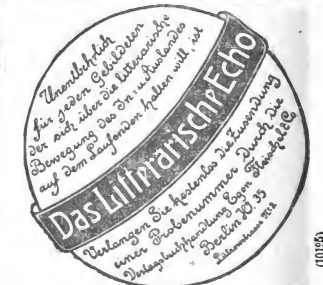 Unentbehrlich
für jeden Gebildeten
der sich über die litterarische
Bewegung des In- u. Auslandes
auf dem Laufenden halten will, ist
Das Litterarische Echo
Verlangen Sie kostenlos die Zusendung
einer Probenummer durch die
Verlagsbuchhandlung Egon Fleischel & Co
Berlin W. 35
(10195)